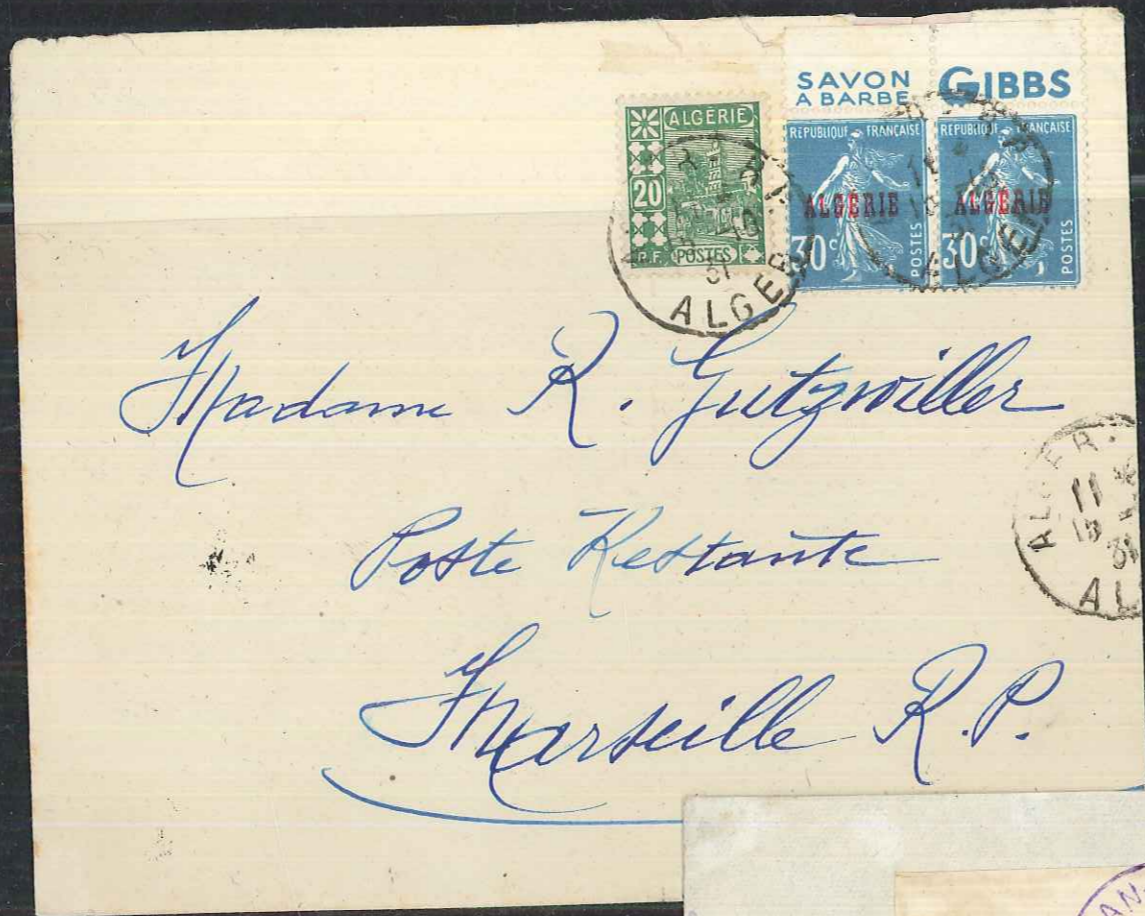 SAVON GIBBS
A BARBE
ALGÉRIE
20
R.F. POSTES
REPUBLIQUE FRANÇAISE
ALGÉRIE
30c POSTES
REPUBLIQUE FRANÇAISE
ALGÉRIE
30c POSTES
ALGER
31
ALGER
Madame R. Gutzwiller
Poste Restante
Marseille R.P.
ALGER
11
31
AL
AN